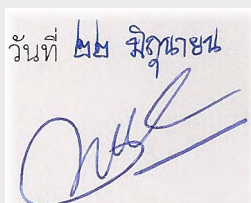 วันที่ ๒๒ มิถุนายน